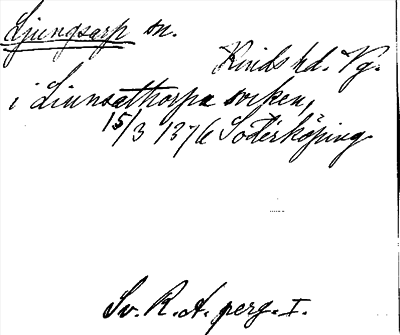 Ljungsarp sn.
Kinds hd. Vg.
i Liunsathorpa soken,
15/3 1376 Söderköping
Sv. R. A. perg. I.